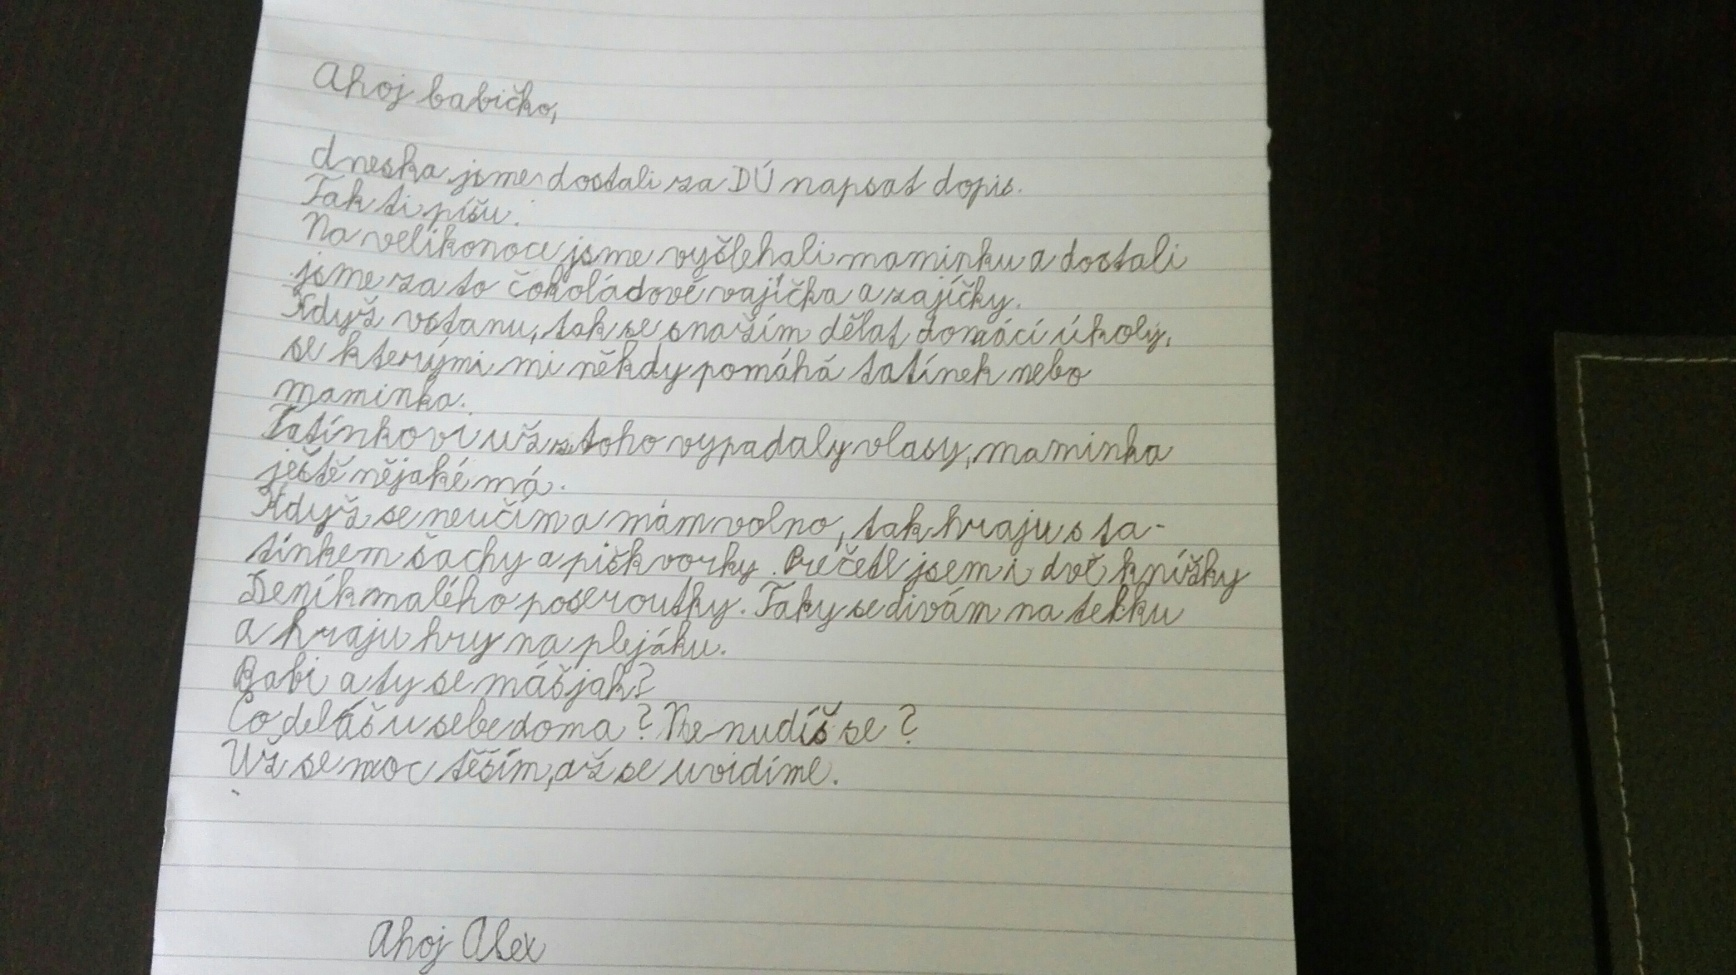 Ahoj babičko,
dneska jsme dostali za DÚ napsat dopis.
Tak ti píšu.
Na velikonoce jsme vyšlehali maminku a dostali
jsme za to čokoládové vajíčka a zajíčky.
Když vstanu, tak se snažím dělat domácí úkoly,
se kterými mi někdy pomáhá tatínek nebo
maminka.
Tatínkovi už z toho vypadaly vlasy, maminka
ještě nějaké má.
Když se neučím a mám volno, tak hraju s ta-
tínkem šachy a piškvorky. Přečetl jsem i dvě knížky
Deník malého poseroutky. Taky se divám na telku
a hraju hry na plejáku.
Babi a ty se máš jak?
Co deláš u sebe doma? Ne nudíš se?
Už se moc těším, až se uvidíme.
Ahoj Alex